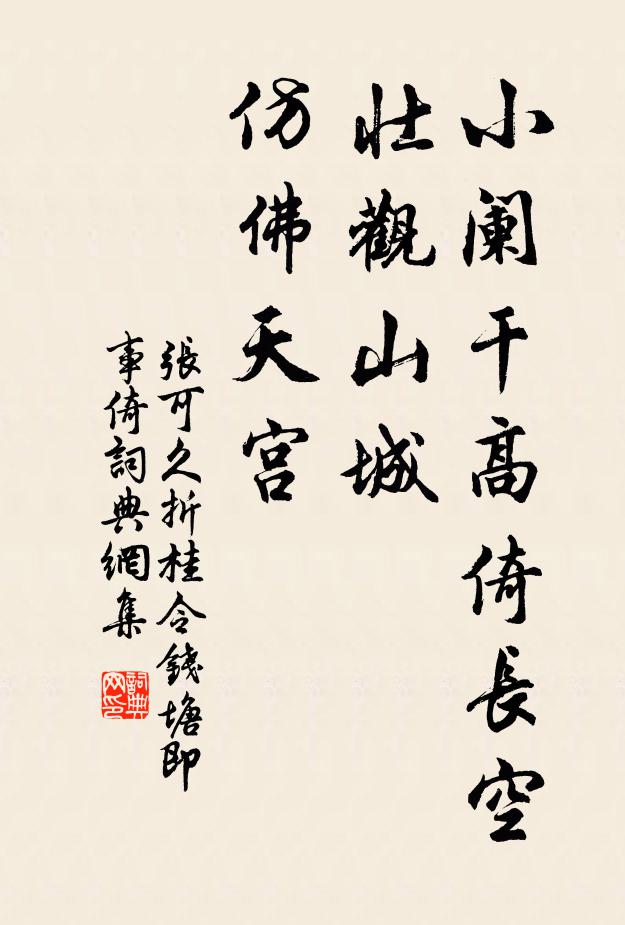 小阑干高倚長空
壮觀山城
仿佛天宫
張可久折桂令錢塘即
事倚詞典網集
詞典
网印